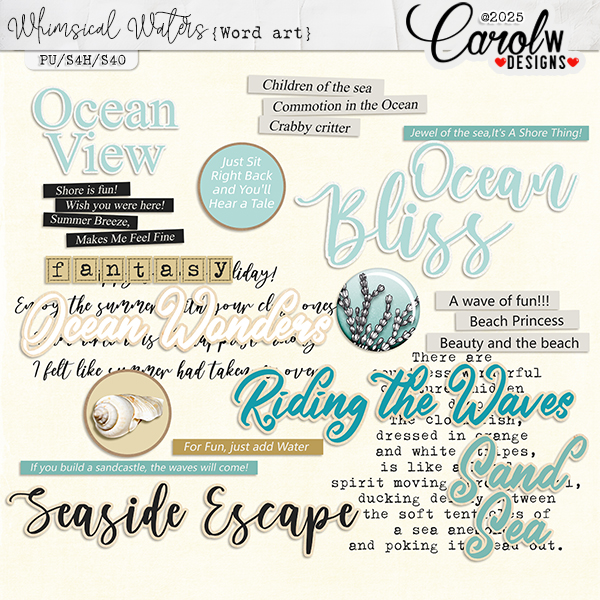 Whimsical Waters {Word art}
PU/S4H/S4O
©2025
CarolW
DESIGNS
Ocean
View
Children of the sea
Commotion in the Ocean
Crabby critter
Jewel of the sea,It's A Shore Thing!
Just Sit
Right Back
and You'll
Hear a Tale
Ocean
Bliss
Shore is fun!
Wish you were here!
Summer Breeze,
Makes Me Feel Fine
fantasy
liday!
Enjoy the summer with your ones
Ocean Wonders
I felt like summer had taken over
A wave of fun!!!
Beach Princess
Beauty and the beach
There are
wonderful
hidden
Riding the Waves
The
dressed in orange
and white stripes,
is like a
spirit moving
ducking between
the soft tentacles of
a sea
and poking its head out.
Sand
Sea
For Fun, just add Water
If you build a sandcastle, the waves will come!
Seaside Escape